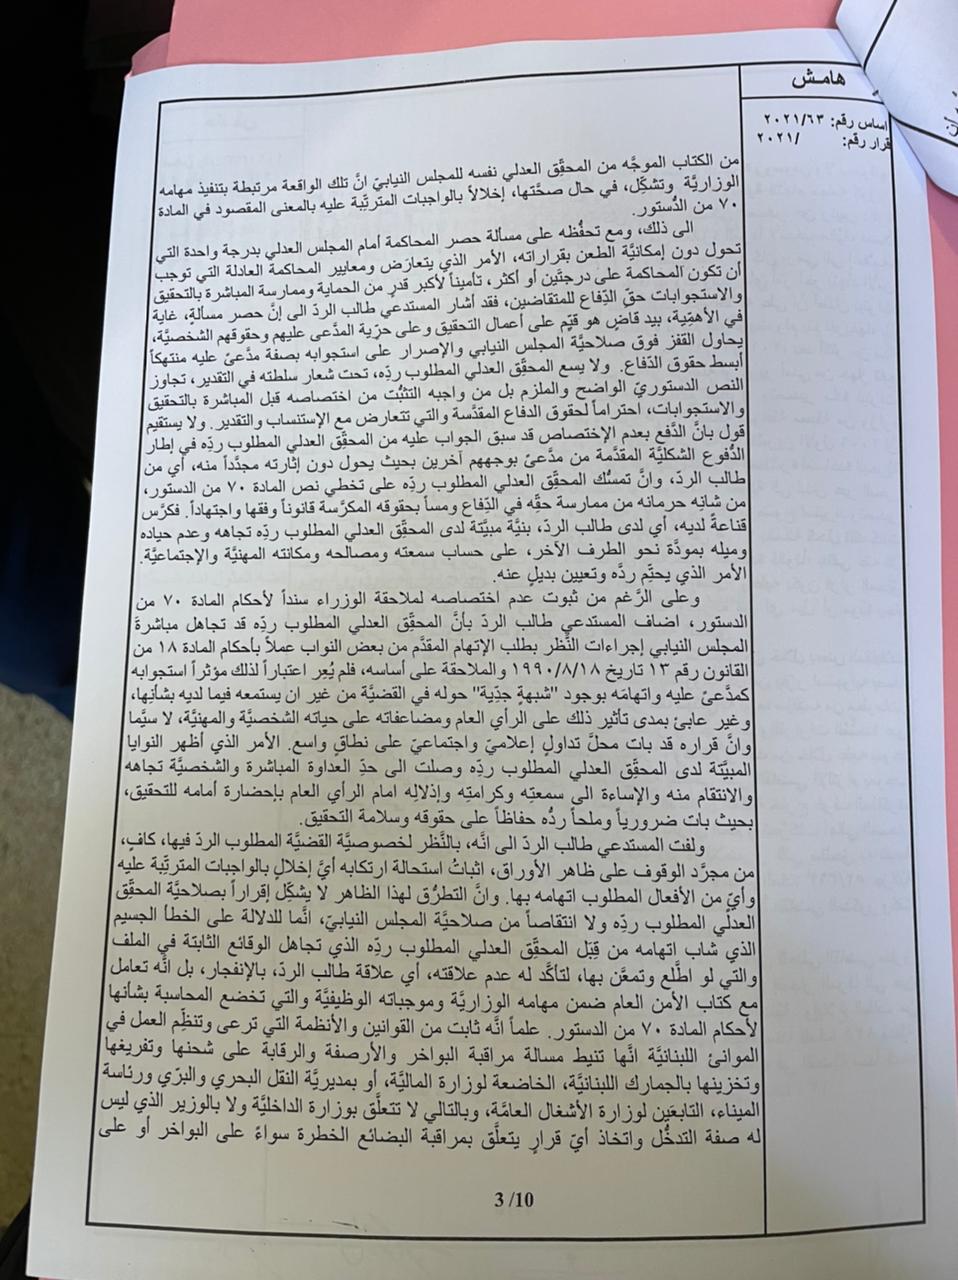 هامش
اساس رقم: ٢٠٢١/٦٣
قرار رقم: /٢٠٢١
من الكتاب الموجَّه من المحقِّق العدلي نفسه للمجلس النيابيّ انَّ تلك الواقعة مرتبطة بتنفيذ مهامه
الوزاريَّة وتشكِّل، في حال صحَّتها، إخلالاً بالواجبات المترتِّبة عليه بالمعنى المقصود في المادة
٧٠ من الدُّستور.
الى ذلك، ومع تحفُّظه على مسألة حصر المحاكمة أمام المجلس العدلي بدرجة واحدة التي
تحول دون إمكانيَّة الطَّعن بقراراته، الأمر الذي يتعارَض ومعايير المحاكمة العادلة التي توجب
أن تكون المحاكمة على درجتَين أو أكثر، تأميناً لأكبر قدرٍ من الحماية وممارسة المباشرة بالتحقيق
والاستجوابات حقّ الدِّفاع للمتقاضين، فقد أشار المستدعي طالب الردّ الى إنَّ حصر مسألةٍ، غاية
في الأهمِّية، بيد قاضٍ هو قيِّم على أعمال التحقيق وعلى حرِّية المدَّعى عليهم وحقوقهم الشخصيَّة،
يحاول القفز فوق صلاحيَّة المجلس النيابي والإصرار على استجوابه بصفة مدَّعىً عليه منتهكاً
أبسط حقوق الدِّفاع. ولا يسع المحقِّق العدلي المطلوب ردّه، تحت شعار سلطته في التقدير، تجاوز
النص الدستوريّ الواضح والملزم بل من واجبه التثبُّت من اختصاصه قبل المباشرة بالتحقيق
والاستجوابات، احتراماً لحقوق الدفاع المقدَّسة والتي تتعارض مع الإستنساب والتقدير. ولا يستقيم
قول بانَّ الدَّفع بعدم الإختصاص قد سبق الجواب عليه من المحقِّق العدلي المطلوب ردّه في إطار
الدُّفوع الشكليَّة المقدَّمة من مدَّعىً بوجههم آخرين بحيث يحول دون إثارته مجدَّداً منه، أي من
طالب الردّ، وانَّ تمسُّك المحقِّق العدلي المطلوب ردّه على تخطي نص المادة ٧٠ من الدستور،
من شانِه حرمانه من ممارسة حقِّه في الدِّفاع ومساً بحقوقه المكرَّسة قانوناً وفقها واجتهاداً. فكرَّس
قناعةً لديه، أي لدى طالب الردّ، بنيَّة مبيَّتة لدى المحقِّق العدلي المطلوب ردّه تجاهه وعدم حياده
وميله بمودَّة نحو الطرف الآخر، على حساب سمعته ومصالحه ومكانته المهنيَّة والإجتماعيَّة.
الأمر الذي يحتِّم ردَّه وتعيين بديلٍ عنه.
وعلى الرَّغم من ثبوت عدم اختصاصه لملاحقة الوزراء سنداً لأحكام المادة ٧٠ من
الدستور، اضاف المستدعي طالب الردّ بأنَّ المحقِّق العدلي المطلوب ردّه قد تجاهل مباشرةَ
المجلس النيابي إجراءات النَّظر بطلب الإتهام المقدَّم من بعض النواب عملاً بأحكام المادة ١٨ من
القانون رقم ١٣ تاريخ ١٩٩٠/٨/١٨ والملاحقة على أساسه، فلم يُعِر اعتباراً لذلك مؤثراً استجوابه
كمدَّعىً عليه واتهامَه بوجود "شبهةٍ جدّية" حوله في القضيَّة من غير ان يستمعه فيما لديه بشأنِها،
وغير عابئٍ بمدى تأثير ذلك على الرأي العام ومضاعفاته على حياته الشخصيَّة والمهنيَّة، لا سيَّما
وانَّ قراره قد بات محلَّ تداولٍ إعلاميّ واجتماعيّ على نطاقٍ واسع. الأمر الذي أظهر النوايا
المبيَّتة لدى المحقِّق العدلي المطلوب ردّه وصلت الى حدِّ العداوة المباشرة والشخصيَّة تجاهه
والانتقام منه والإساءة الى سمعتِه وكرامتِه وإذلالِه امام الرأي العام بإحضارة أمامه للتحقيق،
بحيث بات ضرورياً وملحاً ردُّه حفاظاً على حقوقه وسلامة التحقيق.
ولفت المستدعي طالب الردّ الى انَّه، بالنَّظر لخصوصيَّة القضيَّة المطلوب الردّ فيها، كافٍ،
من مجرَّد الوقوف على ظاهر الأوراق، اثباتُ استحالة ارتكابه أيَّ إخلالٍ بالواجبات المترتِّبة عليه
وأيّ من الأفعال المطلوب اتهامه بها. وانَّ التطرُّق لهذا الظاهر لا يشكِّل إقراراً بصلاحيَّة المحقِّق
العدلي المطلوب ردّه ولا انتقاصاً من صلاحيَّة المجلس النيابيّ، انَّما للدلالة على الخطأ الجسيم
الذي شاب اتهامه من قِبَل المحقِّق العدلي المطلوب ردّه الذي تجاهل الوقائع الثابتة في الملف
والتي لو اطَّلع وتمعَّن بها، لتأكَّد له عدم علاقته، أي علاقة طالب الردّ، بالإنفجار، بل انَّه تعامل
مع كتاب الأمن العام ضمن مهامه الوزاريَّة وموجباته الوظيفيَّة والتي تخضع المحاسبة بشأنها
لأحكام المادة ٧٠ من الدستور. علماً انَّه ثابت من القوانين والأنظمة التي ترعى وتنظِّم العمل في
الموانئ اللبنانيَّة انَّها تنيط مسالة مراقبة البواخر والأرصفة والرقابة على شحنها وتفريغها
وتخزينها بالجمارك اللبنانيَّة، الخاضعة لوزارة الماليَّة، أو بمديريَّة النقل البحري والبرّي ورئاسة
الميناء، التابعَين لوزارة الأشغال العامَّة، وبالتالي لا تتعلَّق بوزارة الداخليَّة ولا بالوزير الذي ليس
له صفة التدخُّل واتخاذ أيّ قرارٍ يتعلَّق بمراقبة البضائع الخطرة سواءً على البواخر أو على
3 /10